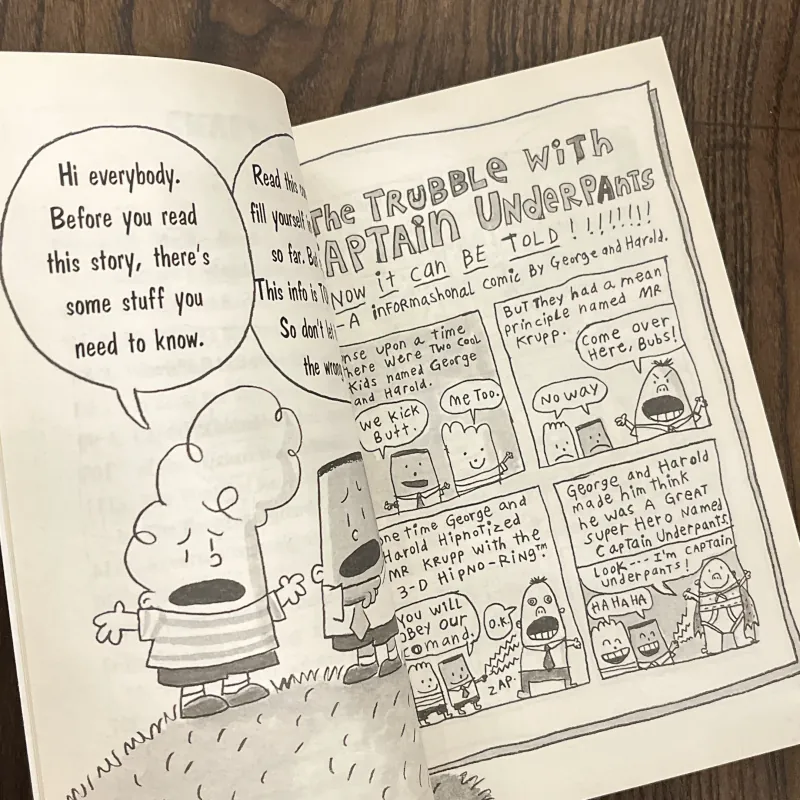 Hi everybody.
Before you read
this story, there's
some stuff you
need to know.
Read this
fill yourself
so far.
This info is
So don't
the
The TRUBBLE WiTH
APTAIN UNDERPANTS
NOW iT CAN BE TOLD!!!!!!!!
-A inFORMAShonal comic By George and Harold.
nse upon a time
here were Two Cool
Kids named George
and Harold.
We Kick
Butt.
Me Too.
But They had a mean
principle named MR
Krupp.
Come over
Here, Bubs!
No way
ne time George and
Harold Hipnotized
MR Krupp with the
3-D Hipno-Ring™.
You will
obey our
comand.
O.K.
ZAP.
George and Harold
made him think
he was A GREAT
Super Hero Named
Captain Underpants.
Look---I'm Captain
Underpants!
HA HA HA